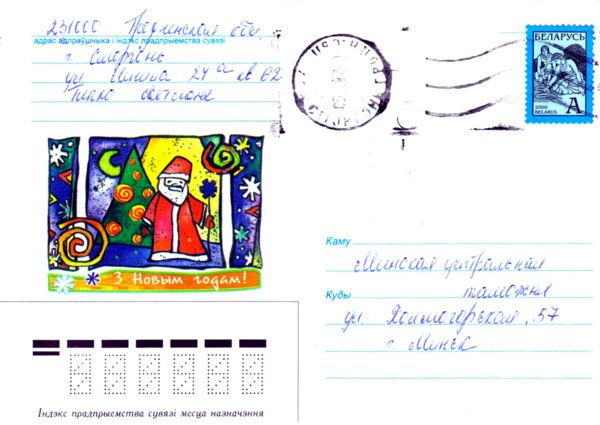 231000 Гродненская обл.
адрас адпраўшчыка і індэкс прадпрыемства сувязі
г. Сморгонь
ул Ленина 24 а кв 62
Светлане
БЕЛАРУСЬ
2000
BELARUS
А
З Новым годам!
Каму
Минская центральная
таможня
Куды
ул. Холмогорская, 57
г. Минск
Індэкс прадпрыемства сувязі месца назначэння